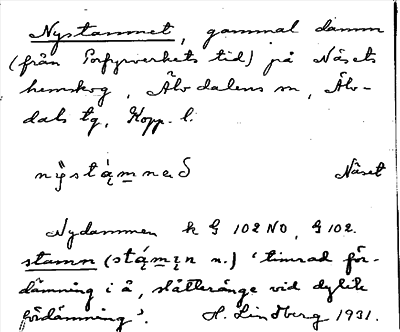 Nystammet, gammal damm
(från Porfyrverkets tid) på Näsets
hemskog, Älvdalens sn, Älv-
dals tg, Kopp. l.
Näset
Nydammen k G 102 NO, G 102.
stamn (stą́mı̨n n.) 'timrad för-
dämning i å, slåtteränge vid dylik
fördämning'. H. Lindberg 1931.